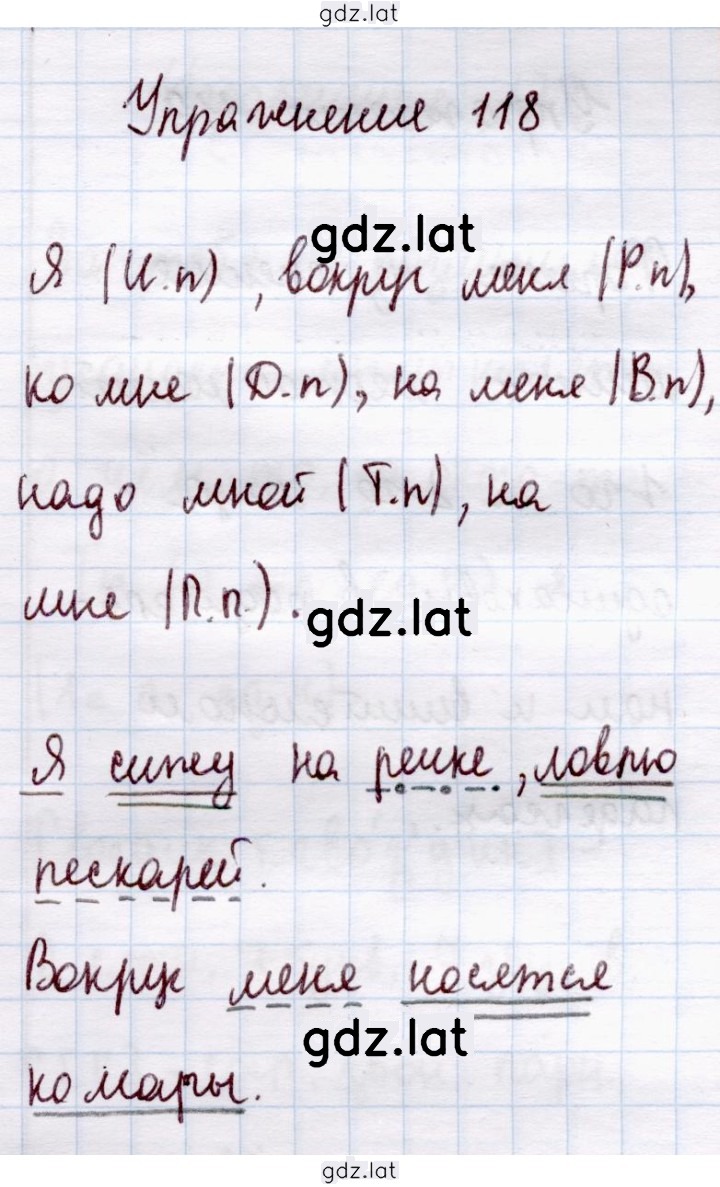 gdz.lat
Упражнение 118
gdz.lat
Я (И.п), вокруг меня (Р.п),
ко мне (D.п), на меня (В.п),
надо мной (Т.п), на
мне (П.п.).
gdz.lat
Я сижу на речке, ловлю
пескарей.
Вокруг меня носятся
gdz.lat
комары.
gdz.lat